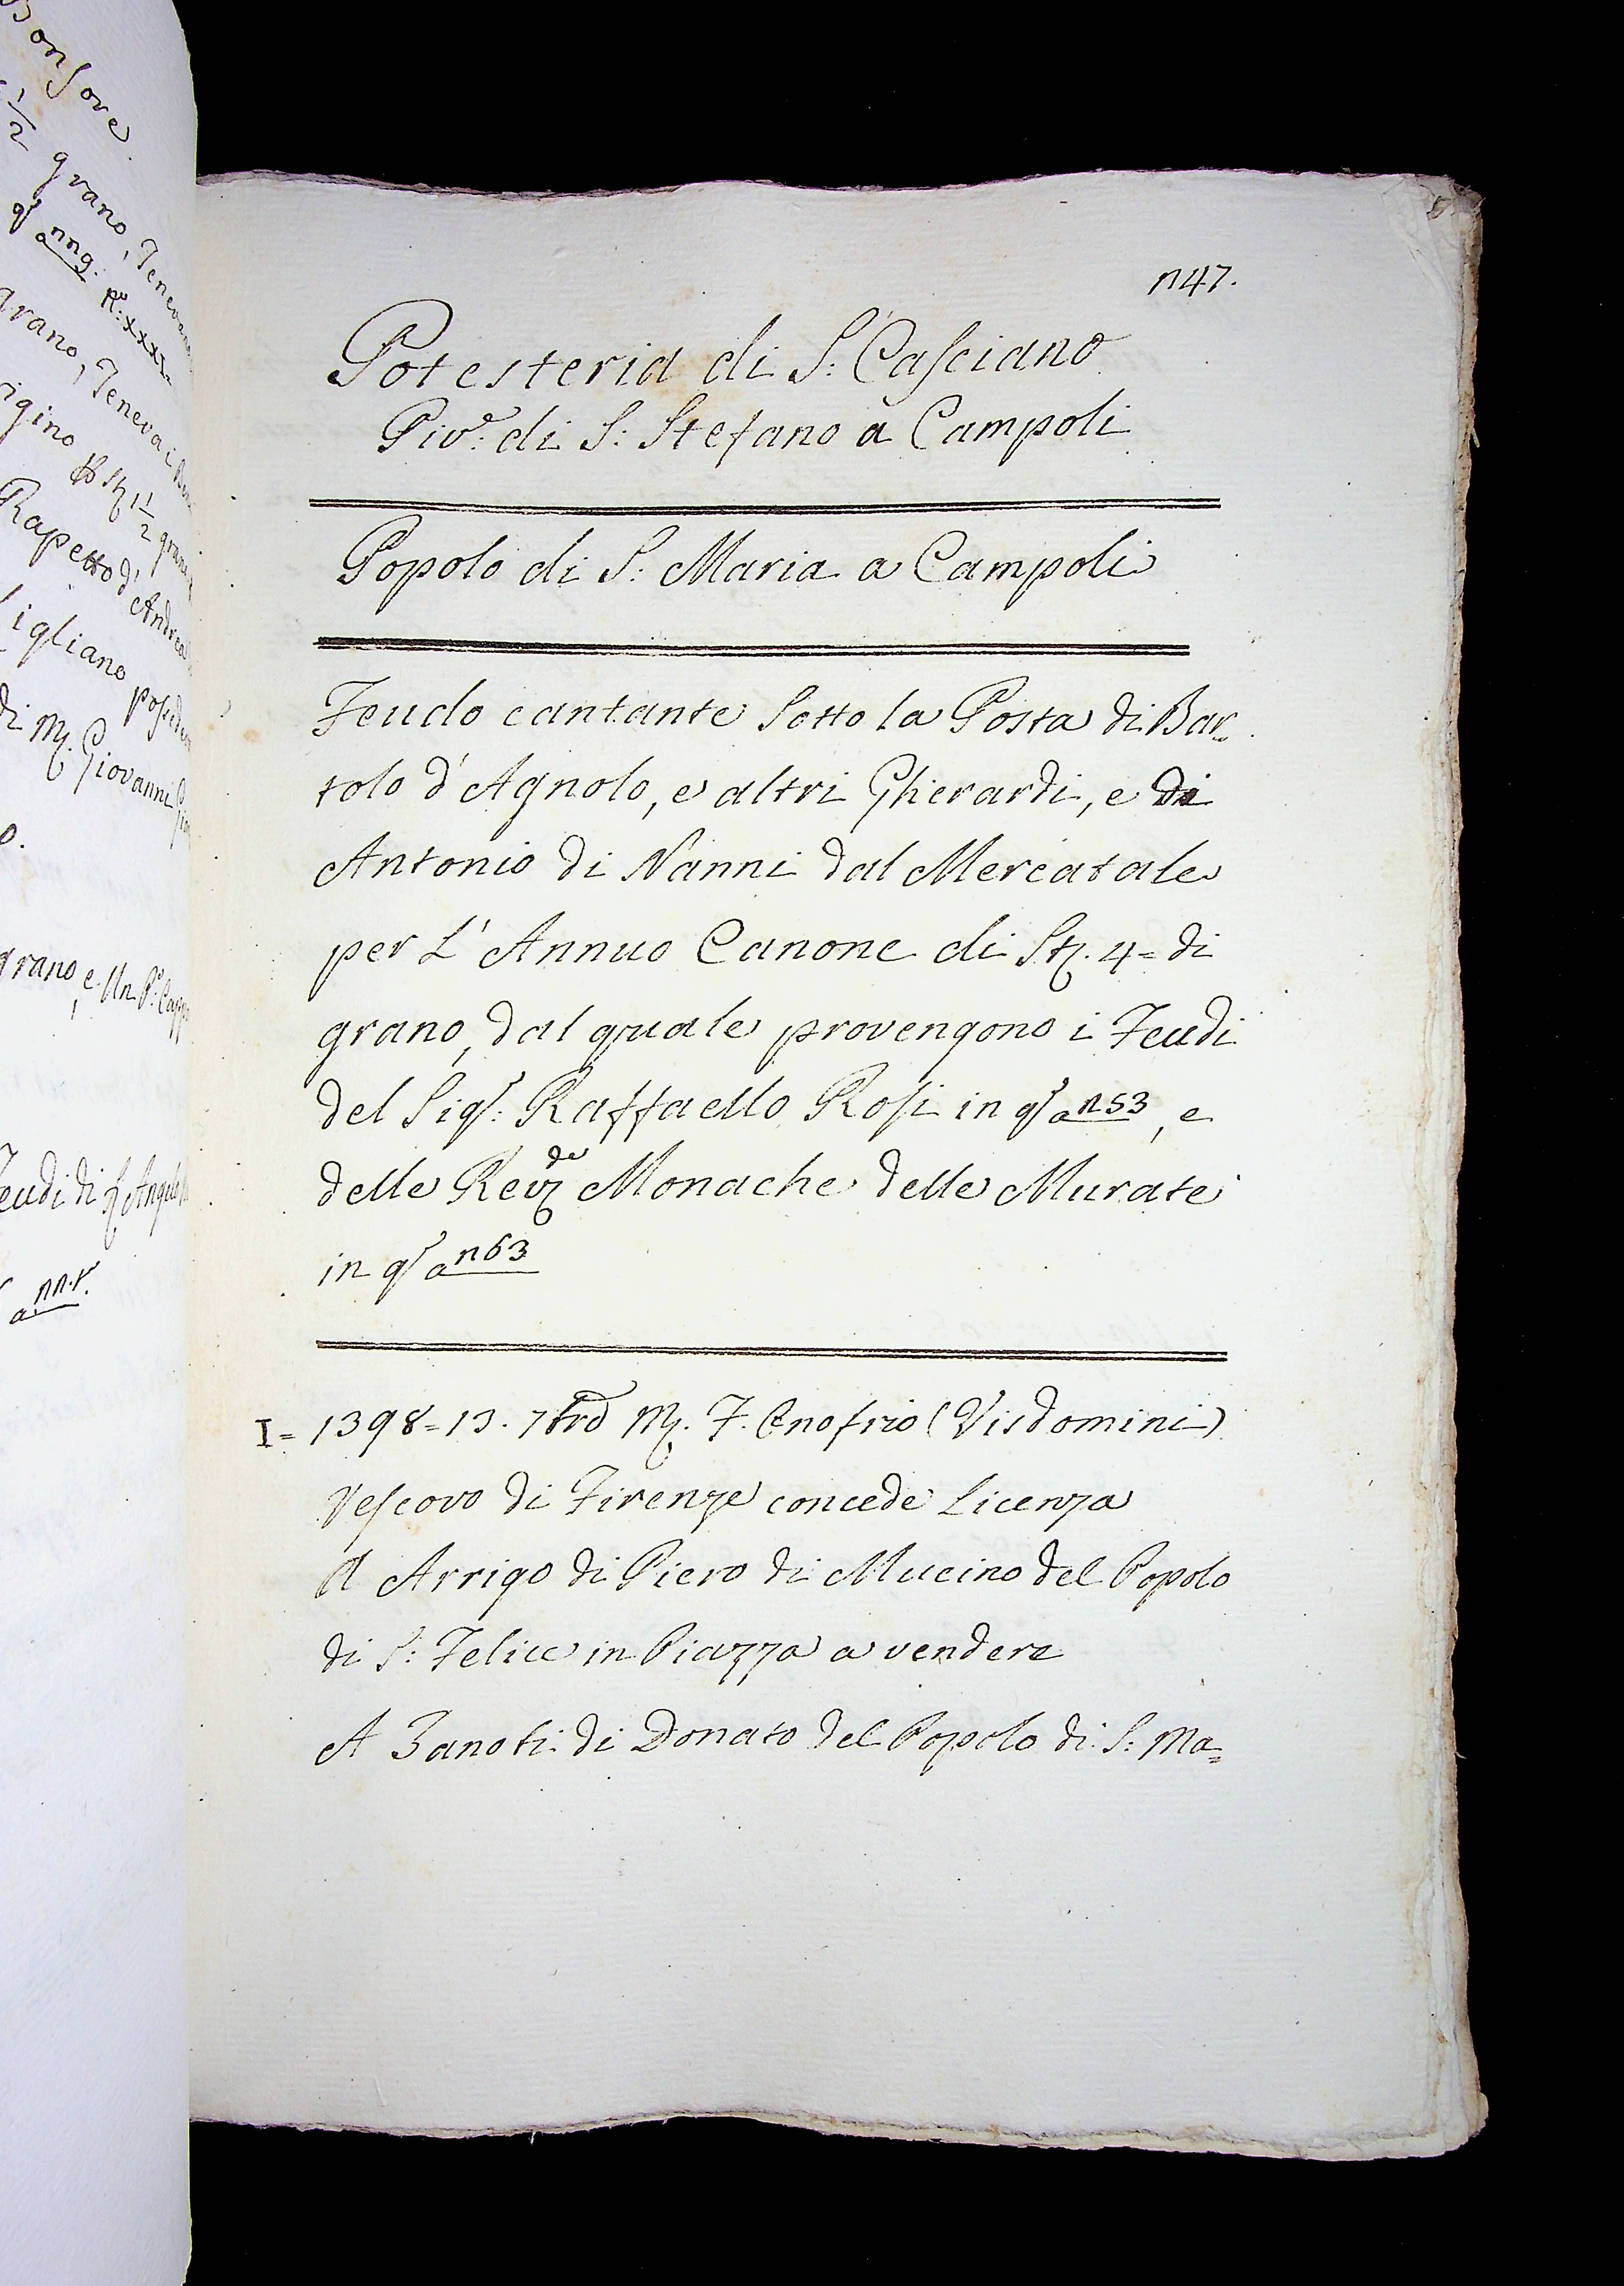 onsore
1/2 grano, Teneva
qs a nn9. Ro: xxxx
grano, Teneva i
igino
Rapetto d'Andrea
igliano
di M. Giovanni
o.
grano, e Un Po: Capp
Feudi di Angelo
a nn.r.
n47.
Potesteria di S: Casciano
Piv.e di S: Stefano à Campoli
Popolo di S: Maria a Campoli
Feudo cantante Sotto la Posta di Bar=
tolo d'Agnolo, e altri Gherardi, e di
Antonio di Nanni dal Mercatale
per L'Annuo Canone di Sta. 4= di
grano, dal quale provengono i Feudi
del Sigr: Raffaello Rosi in qs a n53, e
delle Rev.de Monache delle Murate
in qs a n63
I= 1398=13. 7bre M. F. Onofrio (Visdomini)
Vescovo di Firenze concede Licenza
A Arrigo di Piero di Mucino del Popolo
di S: Felice in Piazza a vendere
A Zanobi di Donato del Popolo di S: Ma=